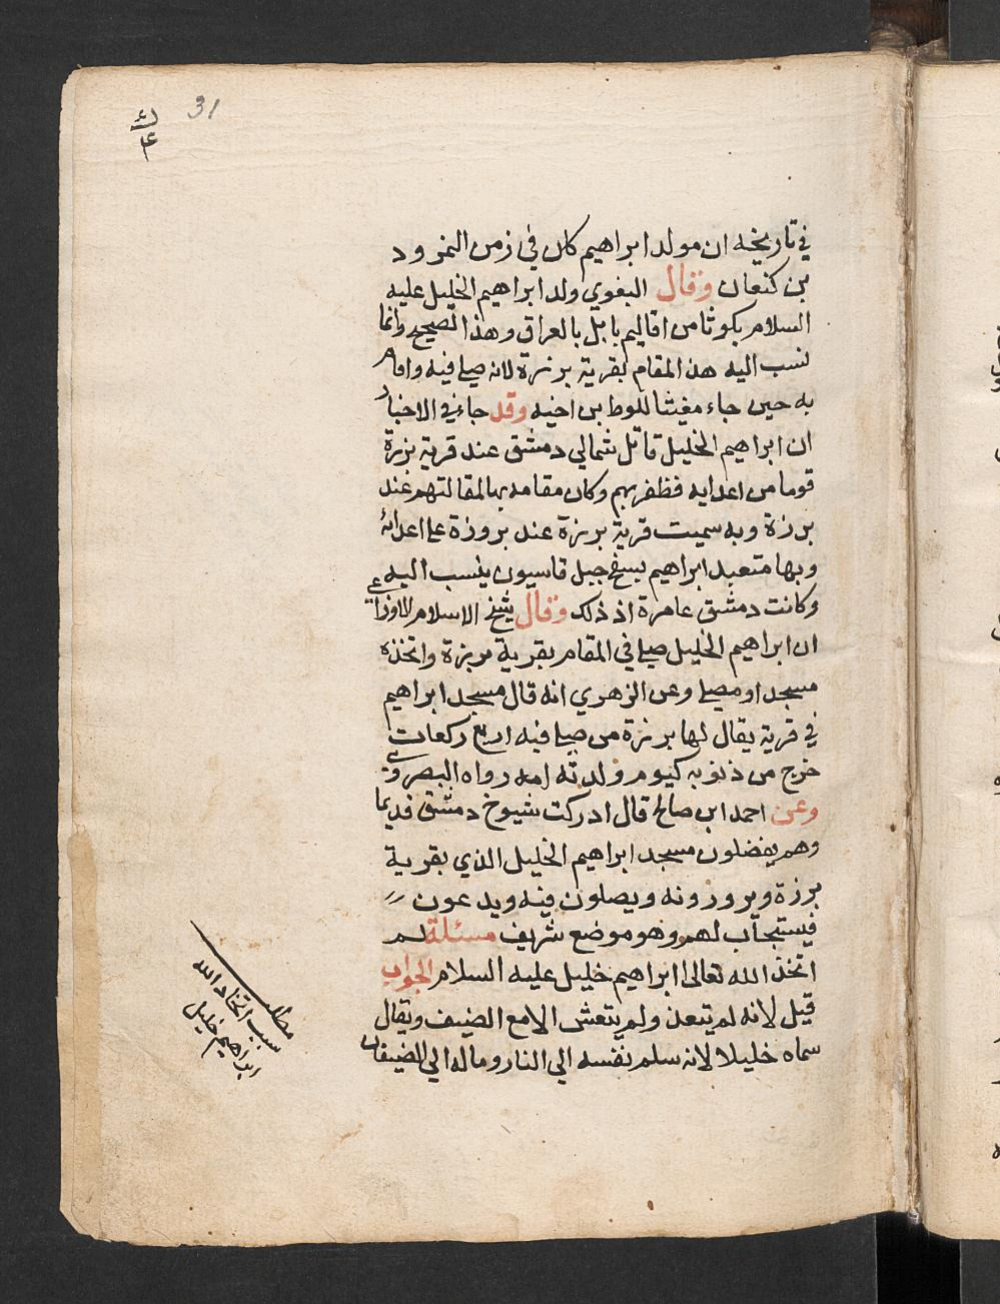 31
في تاريخه ان مولد ابراهيم كان في زمن النمرود
بن كنعان وقال البغوي ولد ابراهيم الخليل عليه
السلام بكوثا من اقاليم بابل بالعراق وهذا الصحيح وانما
نسب اليه هذا المقام بقرية برزة لانه صلى فيه واقام
به حين جاء مغيثا للوط بن اخيه وقد جاء في الاخبار
ان ابراهيم الخليل قاتل شمالي دمشق عند قرية برزة
قوما من اعدايه فظفر بهم وكان مقامه بها لمقاتلتهم عند
برزة وبه سميت قرية برزة عند بروزة على اعدائه
وبها متعبد ابراهيم بسفح جبل قاسيون ينسب اليه
وكانت دمشق عامرة اذ ذلك وقال شيخ الاسلام الاوزاعي
ان ابراهيم الخليل صلى في المقام بقرية برزة واتخذه
مسجد او مصلى وعن الزهري انه قال مسجد ابراهيم
في قرية يقال لها برزة من صلى فيه اربع ركعات
خرج من ذنوبه كيوم ولدته امه رواه
وعن احمد ابن صالح قال ادركت شيوخ دمشق قديما
وهم يفضلون مسجد ابراهيم الخليل الذي بقرية
برزة ويزورونه ويصلون فيه ويدعون
فيستجاب لهم وهو موضع شريف مسئلة لم
اتخذ الله تعالى ابراهيم خليل عليه السلام الجواب
قيل لانه لم يتغد ولم يتعش الا مع الضيف ويقال
سماه خليلا لانه سلم نفسه الي النار وماله الي الضيفان
مطلب
سبب اتخاذ الله
ابراهيم خليل